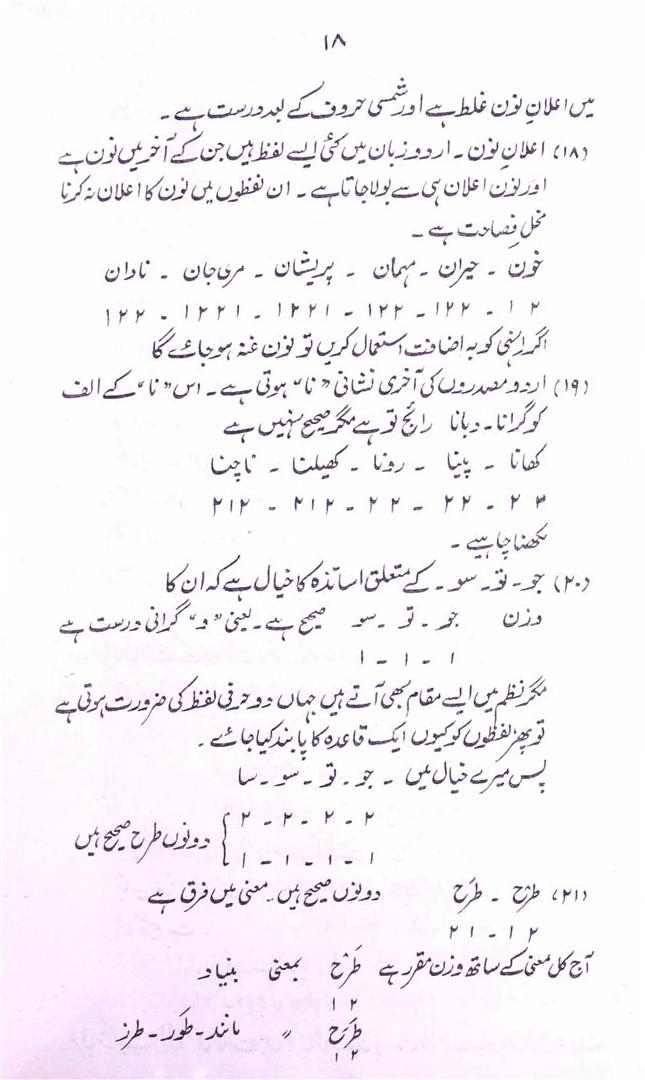 ۱۸
میں اعلانِ نون غلط ہے اور شمسی حروف کے بعد درست ہے۔
(۱۸) اعلانِ نون۔ اردو زبان میں کئی ایسے لفظ ہیں جن کے آخر میں نون ہے
اور نون اعلان ہی سے بولا جاتا ہے۔ ان لفظوں میں نون کا اعلان نہ کرنا
مخلِ فصاحت ہے۔
خون - حیران - مہمان - پریشان - مری جان - نادان
۲ ۱ - ۱۲۲ - ۱۲۲ - ۱۲۲۱ - ۱۲۲۱ - ۱۲۲
اگر انہی کو بہ اضافت استعمال کریں تو نون غنہ ہو جائے گا
(۱۹) اردو مصدروں کی آخری نشانی "نا" ہوتی ہے۔ اس "نا" کے الف
کو گرانا۔ دبانا رائج تو ہے مگر صحیح نہیں ہے
کھانا - پینا - رونا - کھیلنا - ناچنا
۲ ۲ - ۲۲ - ۲۲ - ۲۱۲ - ۲۱۲
لکھنا چاہیے۔
(۲۰) جو - تو - سو - کے متعلق اساتذہ کا خیال ہے کہ ان کا
وزن جو - تو - سو صحیح ہے۔ یعنی "و" گرانی درست ہے
۱ - ۱ - ۱
مگر نظم میں ایسے مقام بھی آتے ہیں جہاں دو حرفی لفظ کی ضرورت ہوتی ہے
تو پھر لفظوں کو کیوں ایک قاعدہ کا پابند کیا جائے۔
پس میرے خیال میں - جو - تو - سو - سا
۲ - ۲ - ۲ - ۲
۱ - ۱ - ۱ - ۱ } دونوں طرح صحیح ہیں
(۲۱) طرْح - طرَح دونوں صحیح ہیں۔ معنی میں فرق ہے
۲ ۱ - ۱ ۲
آج کل معنی کے ساتھ وزن مقرر ہے طَرْح بمعنی بنیاد
۲ ۱
طَرَح " مانند - طَور - طرز
۲ ۱